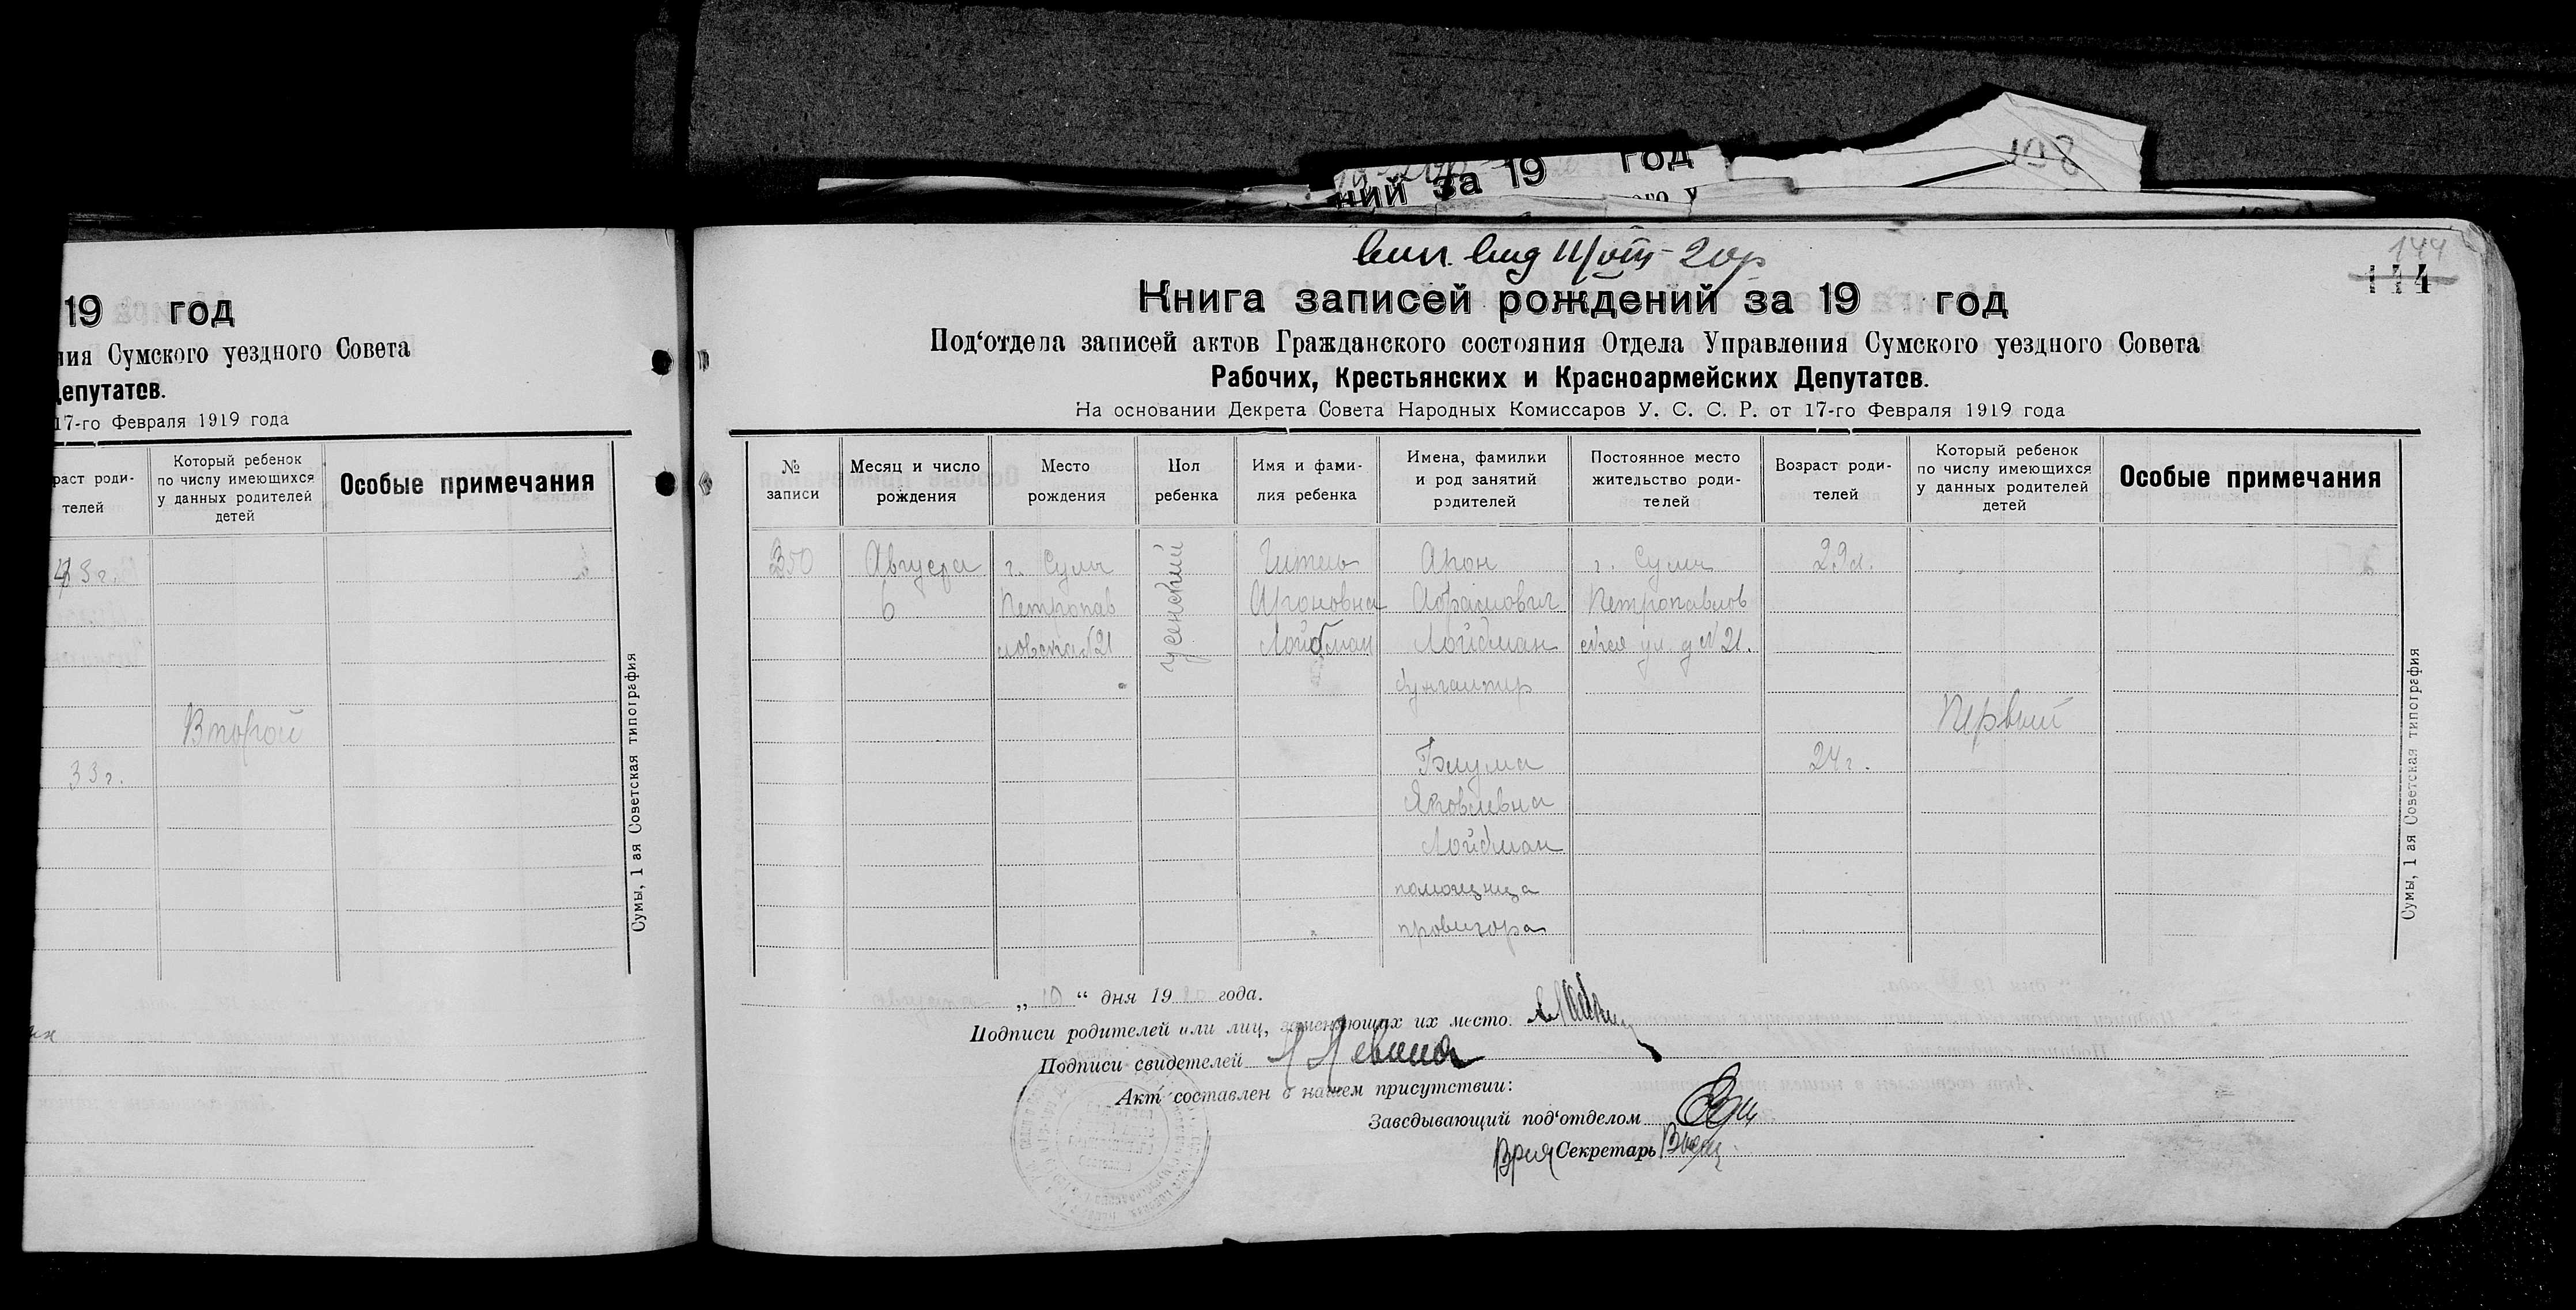 ний за 19 год
198
19 год
ния Сумского уездного Совета
Депутатов.
17-го Февраля 1919 года
раст роди-
телей
Который ребенок
по числу имеющихся
у данных родителей
детей
Особые примечания
43 г.
Второй
33 г.
Сумы, 1 ая Советская типография
144
144
Книга записей рождений за 19 год
Под‘отдела записей актов Гражданского состояния Отдела Управления Сумского уездного Совета
Рабочих, Крестьянских и Красноармейских Депутатов.
На основании Декрета Совета Народных Комиссаров У. С. С. Р. от 17-го Февраля 1919 года
№
записи
Месяц и число
рождения
Место
рождения
Пол
ребенка
Имя и фами-
лия ребенка
Имена, фамилии
и род занятий
родителей
Постоянное место
жительство роди-
телей
Возраст роди-
телей
Который ребенок
по числу имеющихся
у данных родителей
детей
Особые примечания
350
Августа
6
г. Сумы
Петропав
ловская №21
женский
Гитель
Ароновна
Лойбман
Арон
Абрамович
Лойбман
бухгалтер
Блума
Яковлевна
Лойбман
помощница
провизора
г. Сумы
Петропавлов
ская ул. д №21.
29 л.
24 г.
Первый
Сумы, 1 ая Советская типография
августа „ 10 “ дня 1920 года.
Подписи родителей или лиц, заменяющих их место.
Подписи свидетелей Левина
Акт составлен в нашем присутствии:
Заведывающий под‘отделом
Врид Секретарь